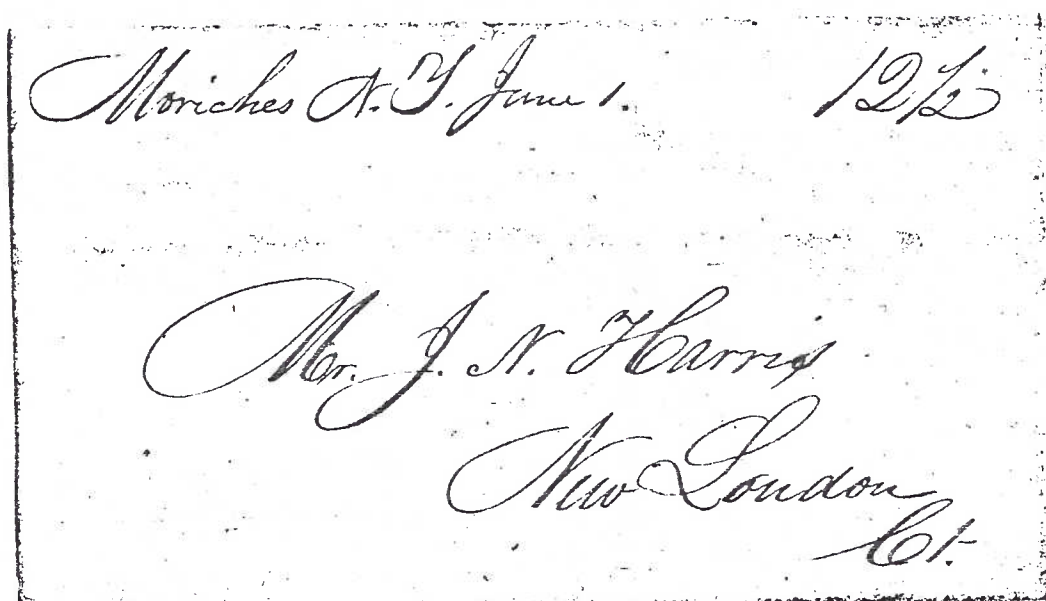 Moriches N. Y. June 1. 12 1/2
Mr. J. N. Harris
New London
Ct.